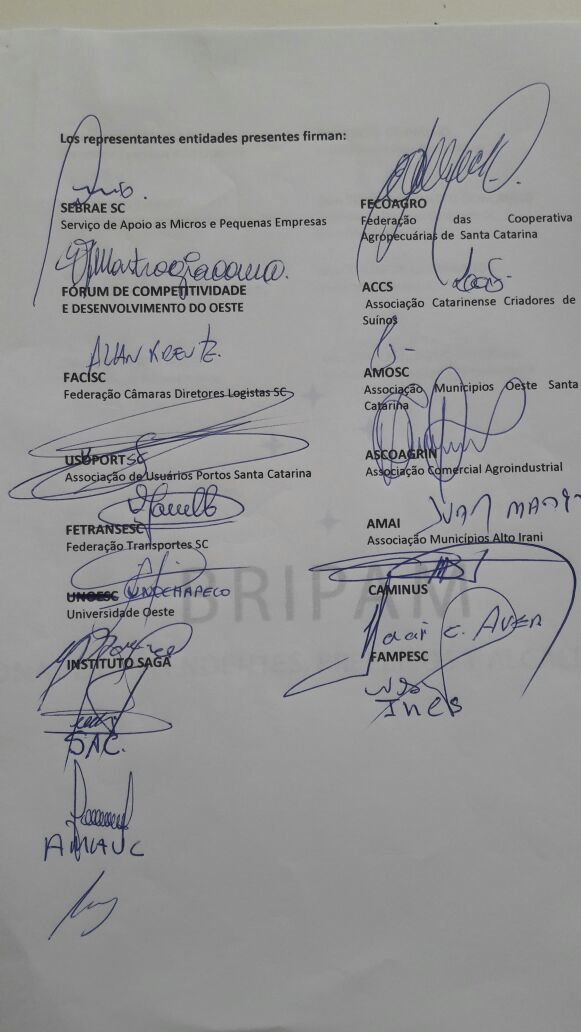 Los representantes entidades presentes firman:
SEBRAE SC
Serviço de Apoio as Micros e Pequenas Empresas
FÓRUM DE COMPETITIVIDADE
E DESENVOLVIMENTO DO OESTE
ALAN KREUTZ
FACISC
Federação Câmaras Diretores Logistas SC
USUPORT SC
Associação de Usuários Portos Santa Catarina
FETRANSESC
Federação Transportes SC
UNOESC UNOCHAPECO
Universidade Oeste
INSTITUTO SAGA
SAC.
AMAUC
FECOAGRO
Federação das Cooperativa
Agropecuárias de Santa Catarina
ACCS
Associação Catarinense Criadores de
Suínos
AMOSC
Associação Municipios Oeste Santa
Catarina
ASCOAGRIN
Associação Comercial Agroindustrial
IVAN
AMAI
Associação Municípios Alto Irani
CAMINUS
FAMPESC
Ines
BRIPAM